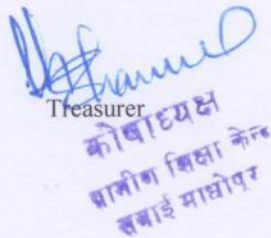 Treasurer
कोषाध्यक्ष
ग्रामीण शिक्षा केन्द्र
सवाई माधोपुर